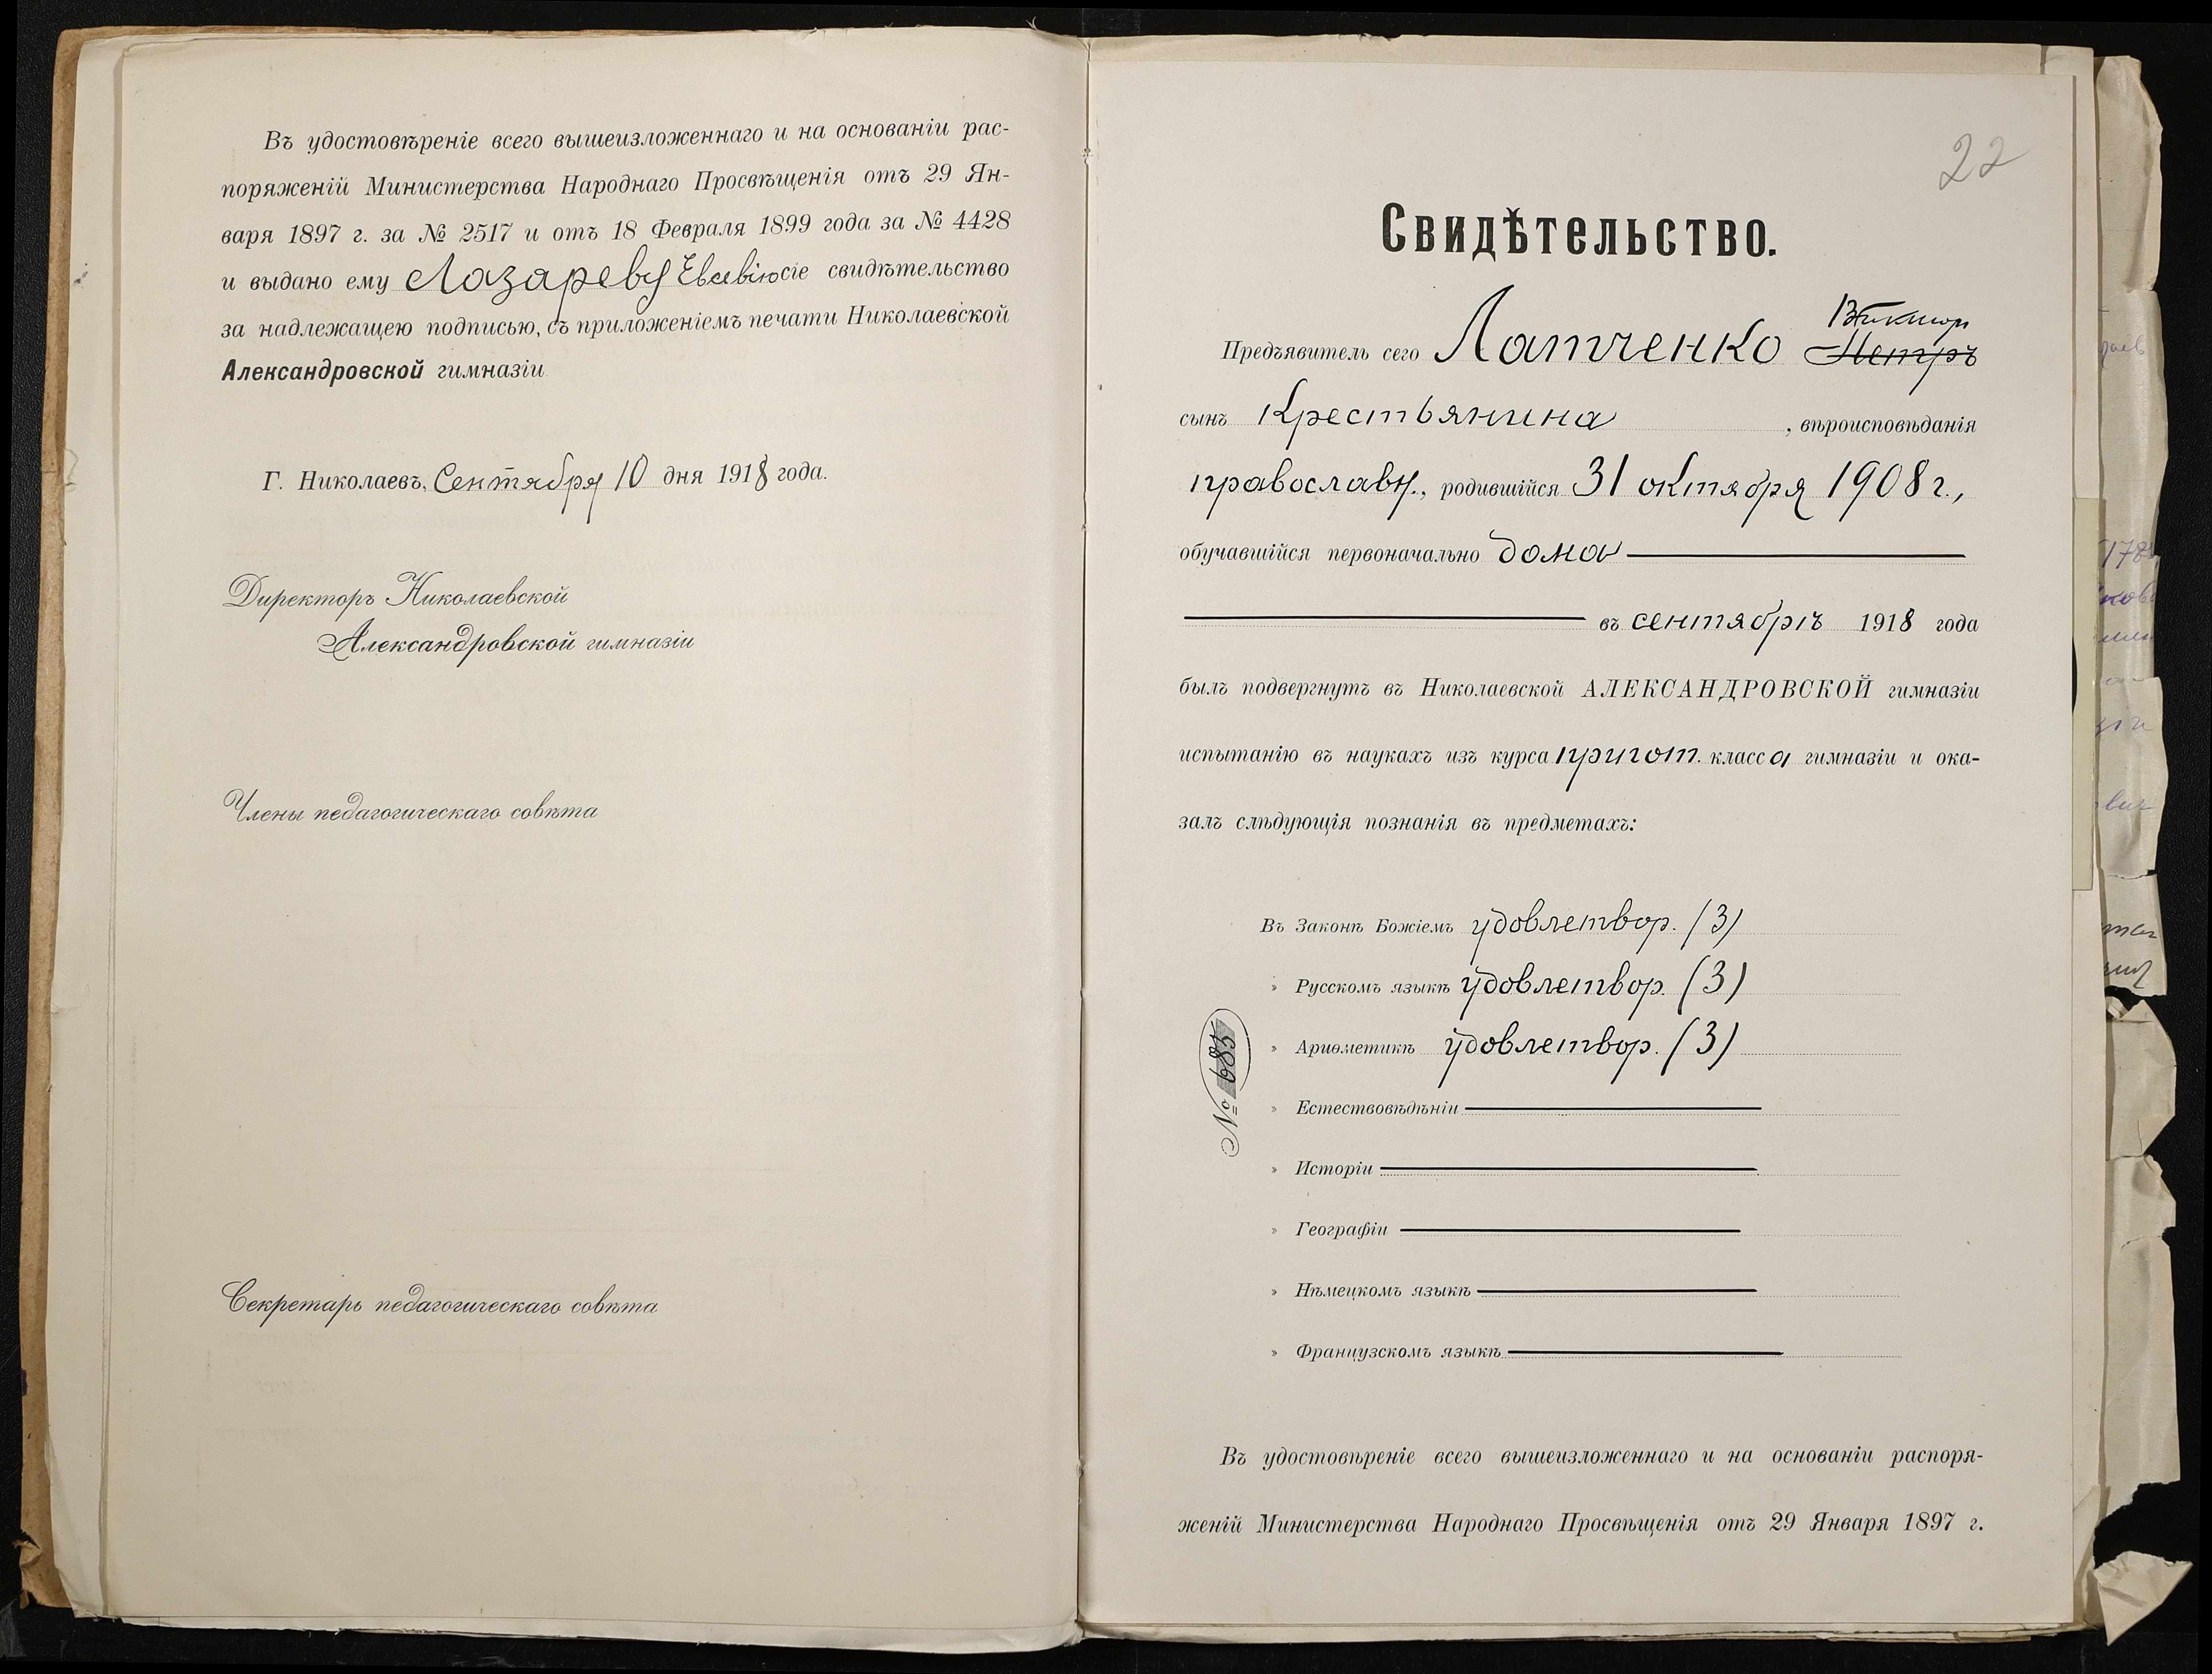 Въ удостовѣреніе всего вышеизложеннаго и на основаніи рас-
поряженій Министерства Народнаго Просвѣщенія отъ 29 Ян-
варя 1897 г. за № 2517 и отъ 18 Февраля 1899 года за № 4428
и выдано ему Лазареву Евсевію сіе свидѣтельство
за надлежащею подписью, съ приложеніемъ печати Николаевской
Александровской гимназіи
Г. Николаевъ, Сентября 10 дня 1918 года.
Директоръ Николаевской
Александровской гимназіи
Члены педагогическаго совѣта
Секретарь педагогическаго совѣта
22
Свидѣтельство.
Виктор
Предъявитель сего Латченко Петръ
сынъ Крестьянина , вѣроисповѣданія
православн., родившійся 31 октября 1908 г.,
обучавшійся первоначально дома
въ сентябрѣ 1918 года
былъ подвергнутъ въ Николаевской АЛЕКСАНДРОВСКОЙ гимназіи
испытанію въ наукахъ изъ курса пригот. класса гимназіи и ока-
залъ слѣдующія познанія въ предметахъ:
Въ Законѣ Божіемъ удовлетвор. (3)
» Русскомъ языкѣ удовлетвор. (3)
» Ариѳметикѣ удовлетвор. (3)
№ 685
» Естествовѣдѣніи
» Исторіи
» Географіи
» Нѣмецкомъ языкѣ
» Французскомъ языкѣ
Въ удостовѣреніе всего вышеизложеннаго и на основаніи распоря-
женій Министерства Народнаго Просвѣщенія отъ 29 Января 1897 г.